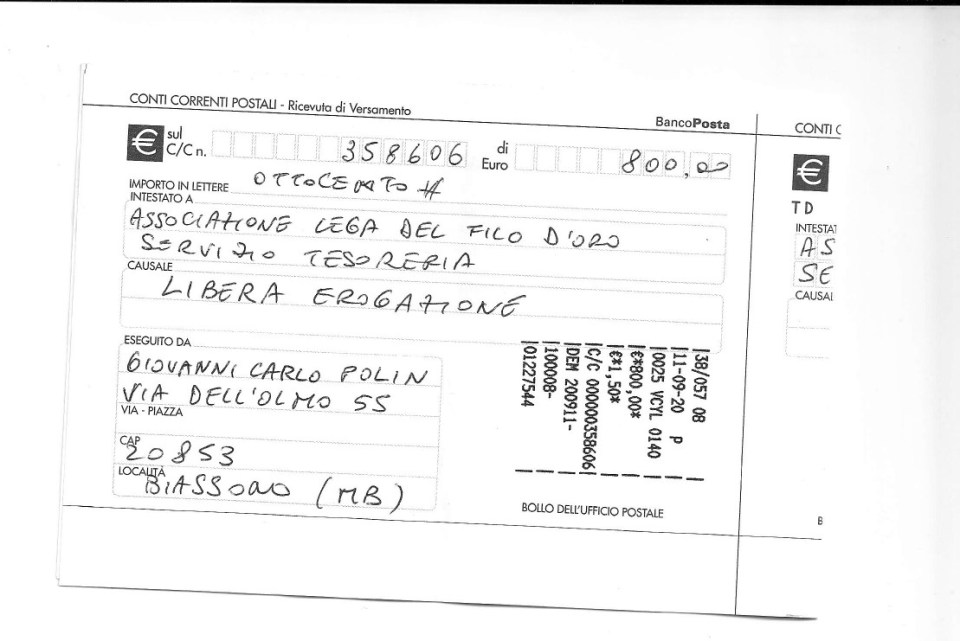 CONTI CORRENTI POSTALI - Ricevuta di Versamento
BancoPosta
€ sul C/C n. 358606 di Euro 800,00
IMPORTO IN LETTERE OTTOCENTO #
INTESTATO A
ASSOCIAZIONE LEGA DEL FILO D'ORO
SERVIZIO TESORERIA
CAUSALE
LIBERA EROGAZIONE
ESEGUITO DA
GIOVANNI CARLO POLIN
VIA DELL'OLMO 55
VIA - PIAZZA
CAP
20853
LOCALITÀ
BIASSONO (MB)
|38/057 08 |
|11-09-20 P |
|0025 VCYL 0140 |
|€*800,00* |
|€*1,50* |
|C/C 000000358606|
|DEM 200911- |
|100008- |
|01227544 |
BOLLO DELL'UFFICIO POSTALE
CONTI C
€
TD
INTESTAT
AS
SE
CAUSAL
B